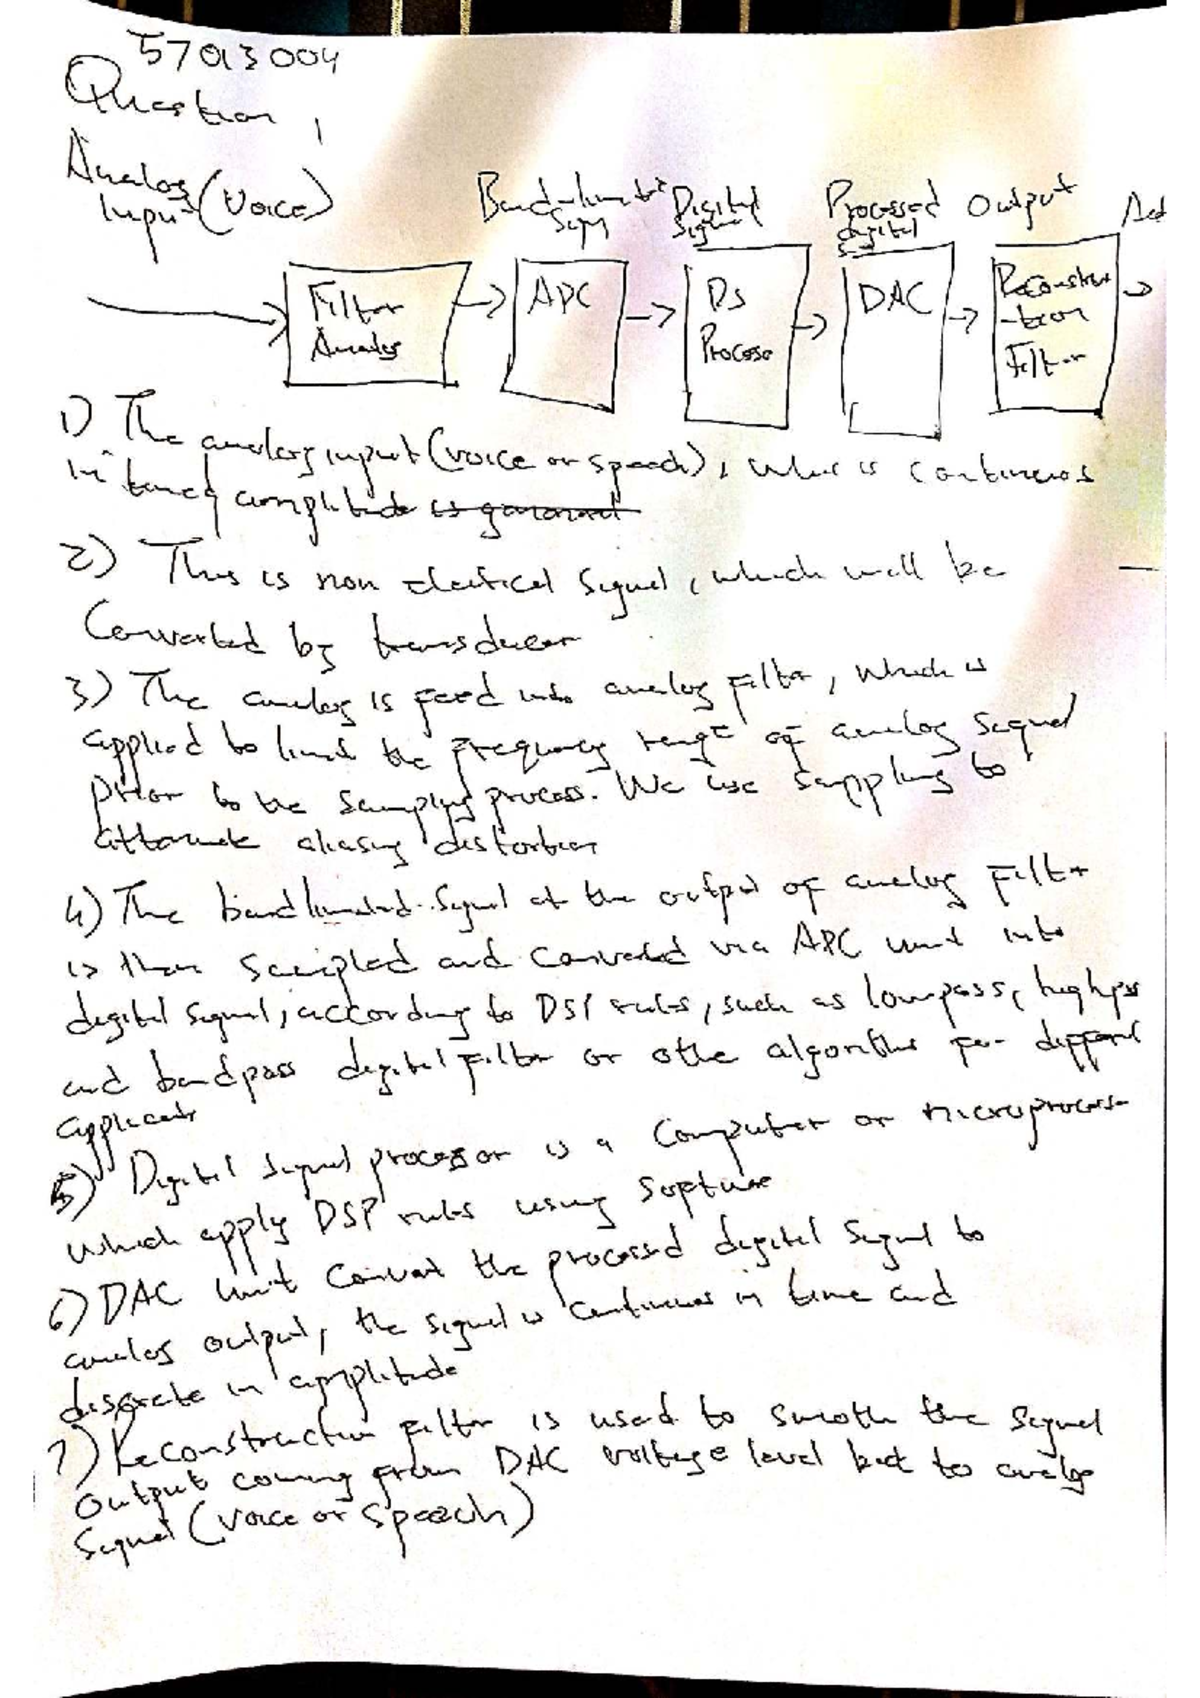 57013004
Question 1
Analog
Input (Voice)
Band-limited Digital Processed Output
Signal digital
Filter
Analog
ADC
DS
Process
DAC
Reconstruc
-tion
Filter
1) The analog input (voice or speech), what is continuous
in time & amplitude is
2) This is non electical signal, which will be
Converted by transducer
3) The analog is feed into analog filter, which is
applied to limit the frequency range of analog signal
prior to the sampling process. We use sampling to
attenuate aliasing distortion
4) The bandlimited signal at the output of analog filter
is then sampled and converted via ADC unit into
digital signal, according to DSP rules, such as lowpass, highpass
and bandpass digital filter or othe algorithm for
5) Digital signal processor is a Computer or microprocessor
which apply DSP rules using software
6) DAC unit convert the processed digital signal to
analog output, the signal is continuous in time and
discrete in amplitude
7) Reconstruction filter is used to smooth the signal
output coming from DAC voltage level back to analog
signal (voice or speech)